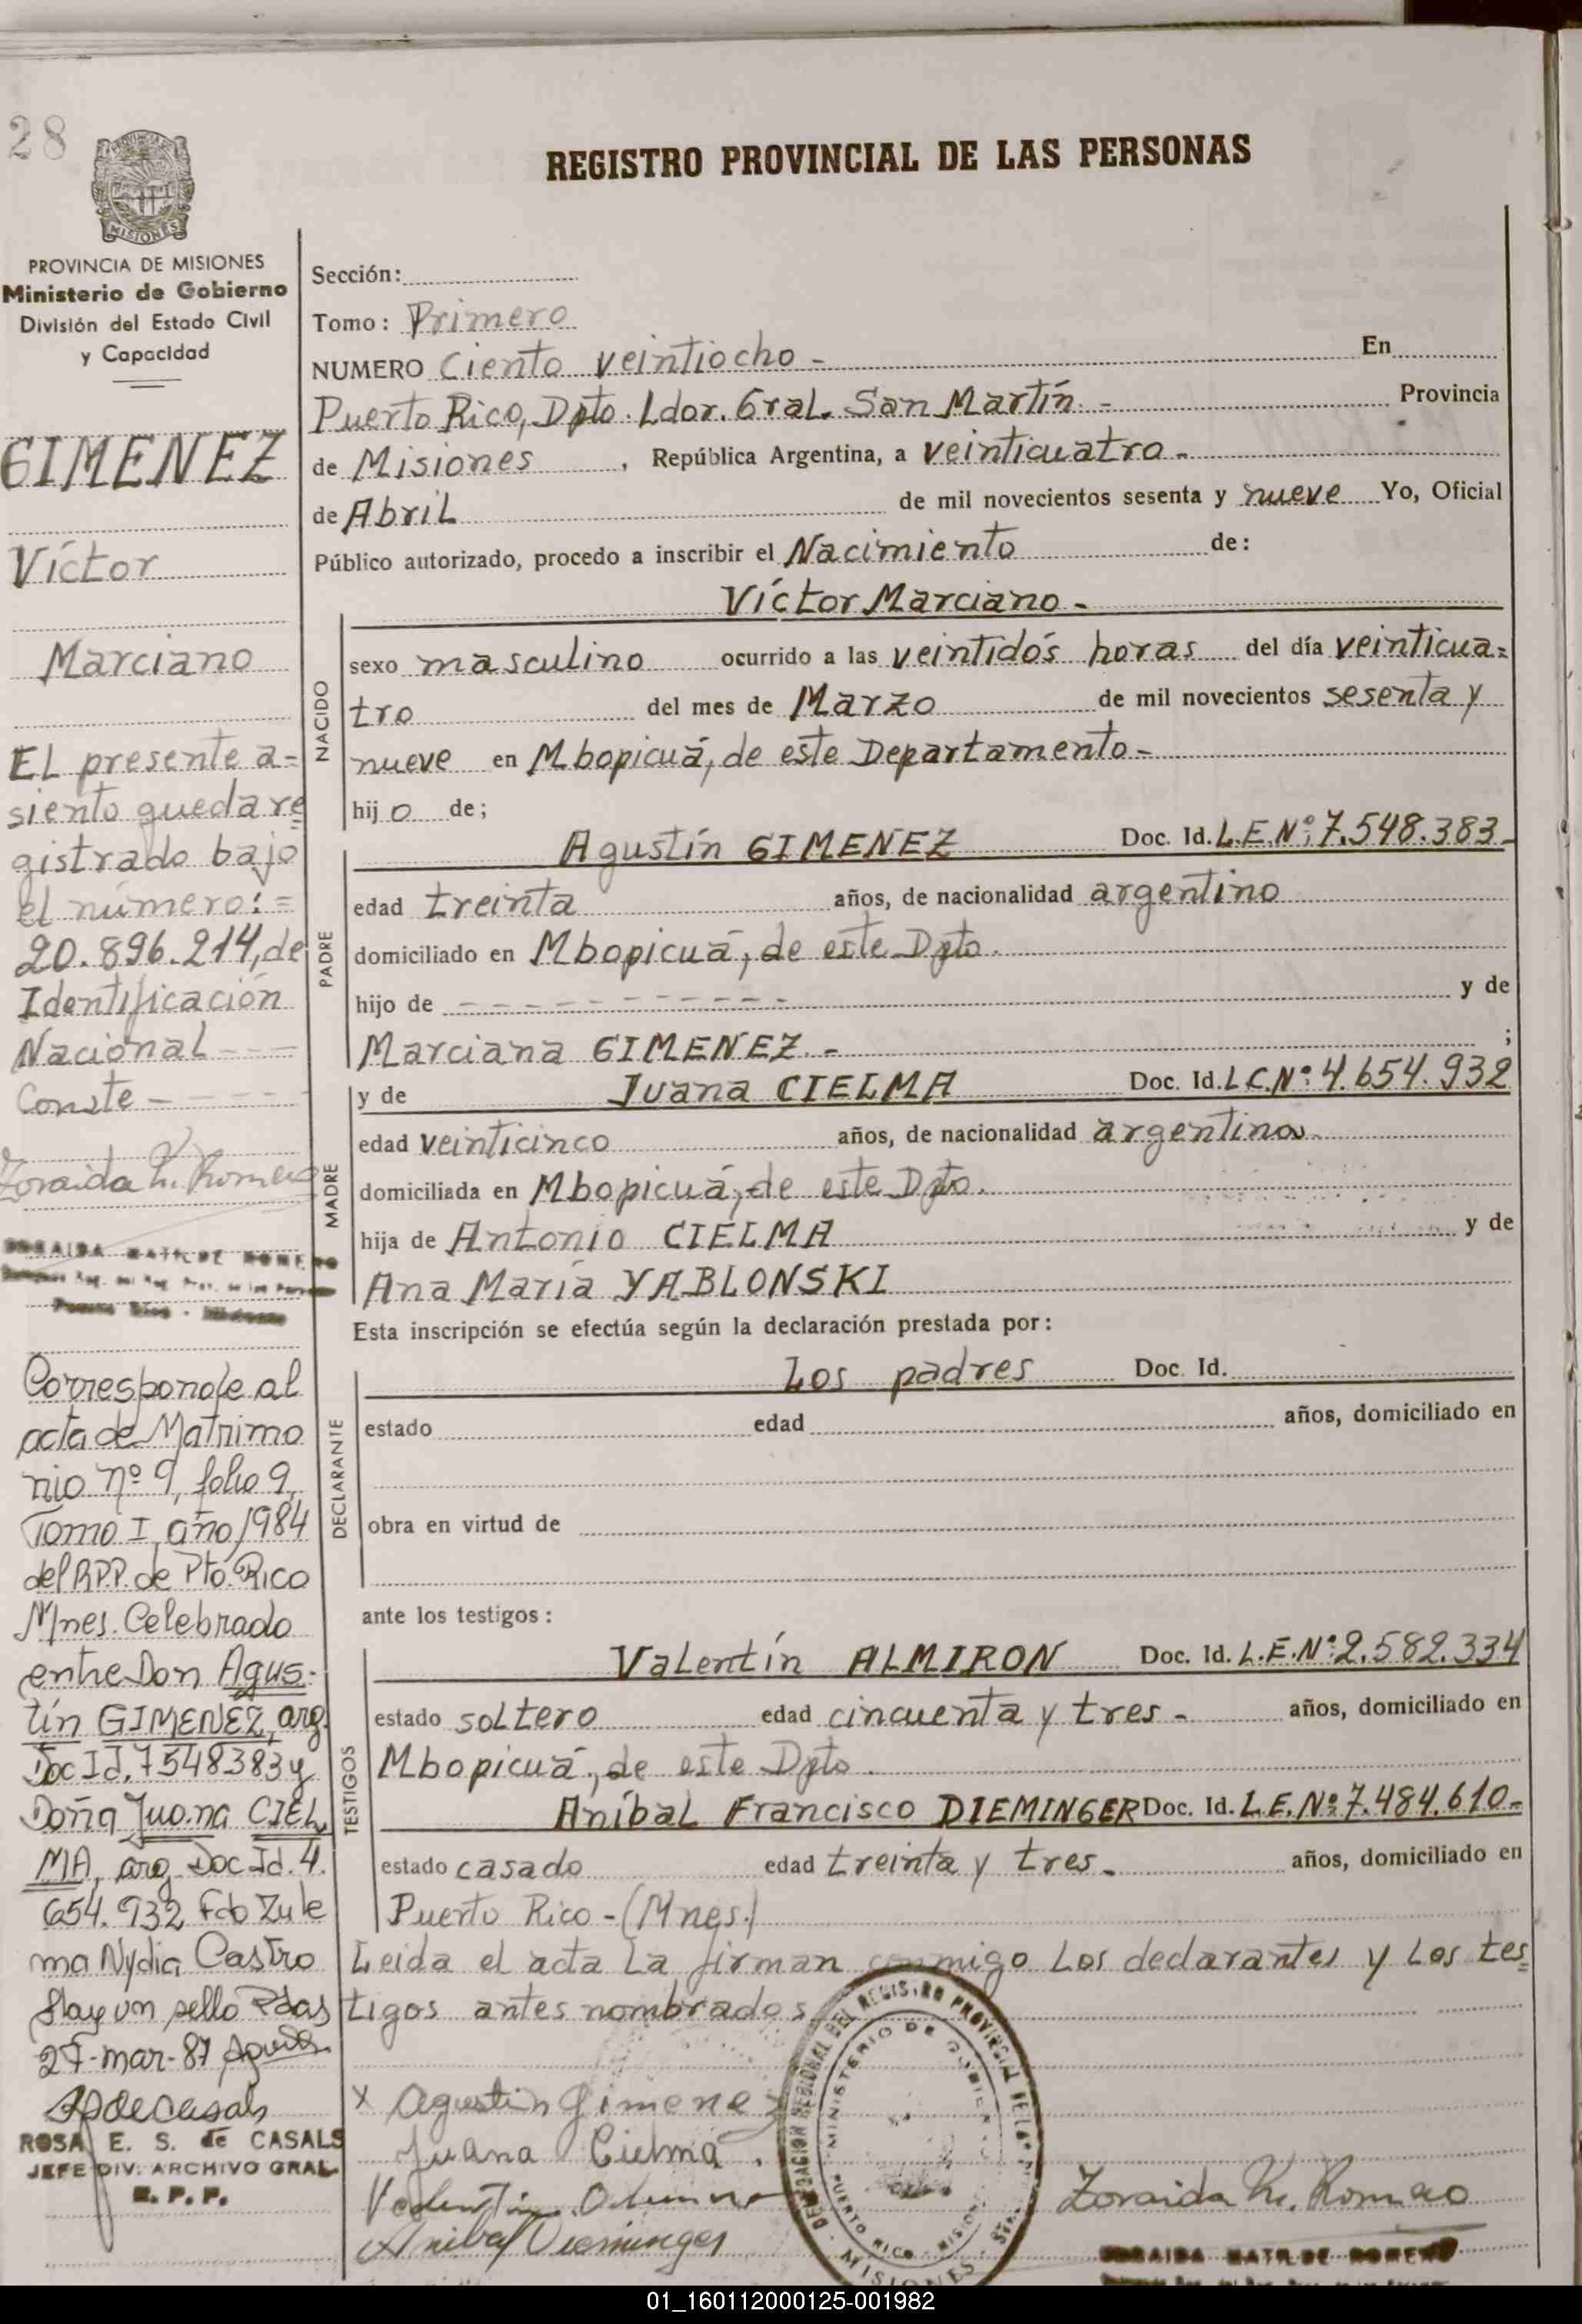 28
PROVINCIA DE MISIONES
Ministerio de Gobierno
División del Estado Civil
y Capacidad
GIMENEZ
Víctor
Marciano
EL presente a=
siento queda re
gistrado bajo
el número:=
20.896.214, de
Identificación
Nacional ---
Conste -----
Zoraida M. Romero
ZORAIDA MATILDE ROMERO
Puerto Rico - Misiones
Corresponde al
acta de Matrimo
nio nº 9, folio 9,
Tomo I, año 1984
del R.P.P. de Pto. Rico
Mnes. Celebrado
entre Don Agus-
tín GIMENEZ, arg.
Doc Id. 7548383 y
Doña Juana CIEL
MA, arg. Doc Id. 4.
654.932 Fdo Zule
ma Nydia Castro
Hay un sello Pdas
27-mar-87
ROSA E. S. de CASALS
JEFE DIV. ARCHIVO GRAL.
R. P. P.
REGISTRO PROVINCIAL DE LAS PERSONAS
Sección:
Tomo: Primero
NUMERO Ciento veintiocho - En
Puerto Rico, Dpto. Ldor. Gral. San Martín. - Provincia
de Misiones, República Argentina, a veinticuatro -
de Abril de mil novecientos sesenta y nueve Yo, Oficial
Público autorizado, procedo a inscribir el Nacimiento de:
Víctor Marciano -
NACIDO
sexo masculino ocurrido a las veintidós horas del día veinticua=
tro del mes de Marzo de mil novecientos sesenta y
nueve en Mbopicuá, de este Departamento -
hijo de;
PADRE
Agustín GIMENEZ Doc. Id. L.E.Nº: 7.548.383-
edad treinta años, de nacionalidad argentino
domiciliado en Mbopicuá, de este Dpto.
hijo de ----------- y de
Marciana GIMENEZ. - ;
MADRE
y de Juana CIELMA Doc. Id. L.C.Nº: 4.654.932
edad veinticinco años, de nacionalidad argentina
domiciliada en Mbopicuá, de este Dpto.
hija de Antonio CIELMA y de
Ana María YABLONSKI
Esta inscripción se efectúa según la declaración prestada por:
DECLARANTE
Los padres Doc. Id.
estado edad años, domiciliado en
obra en virtud de
ante los testigos:
TESTIGOS
Valentín ALMIRON Doc. Id. L.E.Nº: 2.582.334
estado soltero edad cincuenta y tres - años, domiciliado en
Mbopicuá, de este Dpto.
Aníbal Francisco DIEMINGER Doc. Id. L.E.Nº 7.484.610-
estado casado edad treinta y tres - años, domiciliado en
Puerto Rico - (Mnes.)
Leida el acta La firman conmigo Los declarantes y Los tes=
tigos antes nombrados
x Agustin Gimenez
Juana Cielma.
Anibal Dieminger
DELEGACION REGIONAL DEL REGISTRO PROVINCIAL DE LAS
MINISTERIO DE GOBIERNO
PUERTO RICO - MISIONES
MISIONES
Zoraida M. Romero
ZORAIDA MATILDE ROMERO
01_160112000125-001982